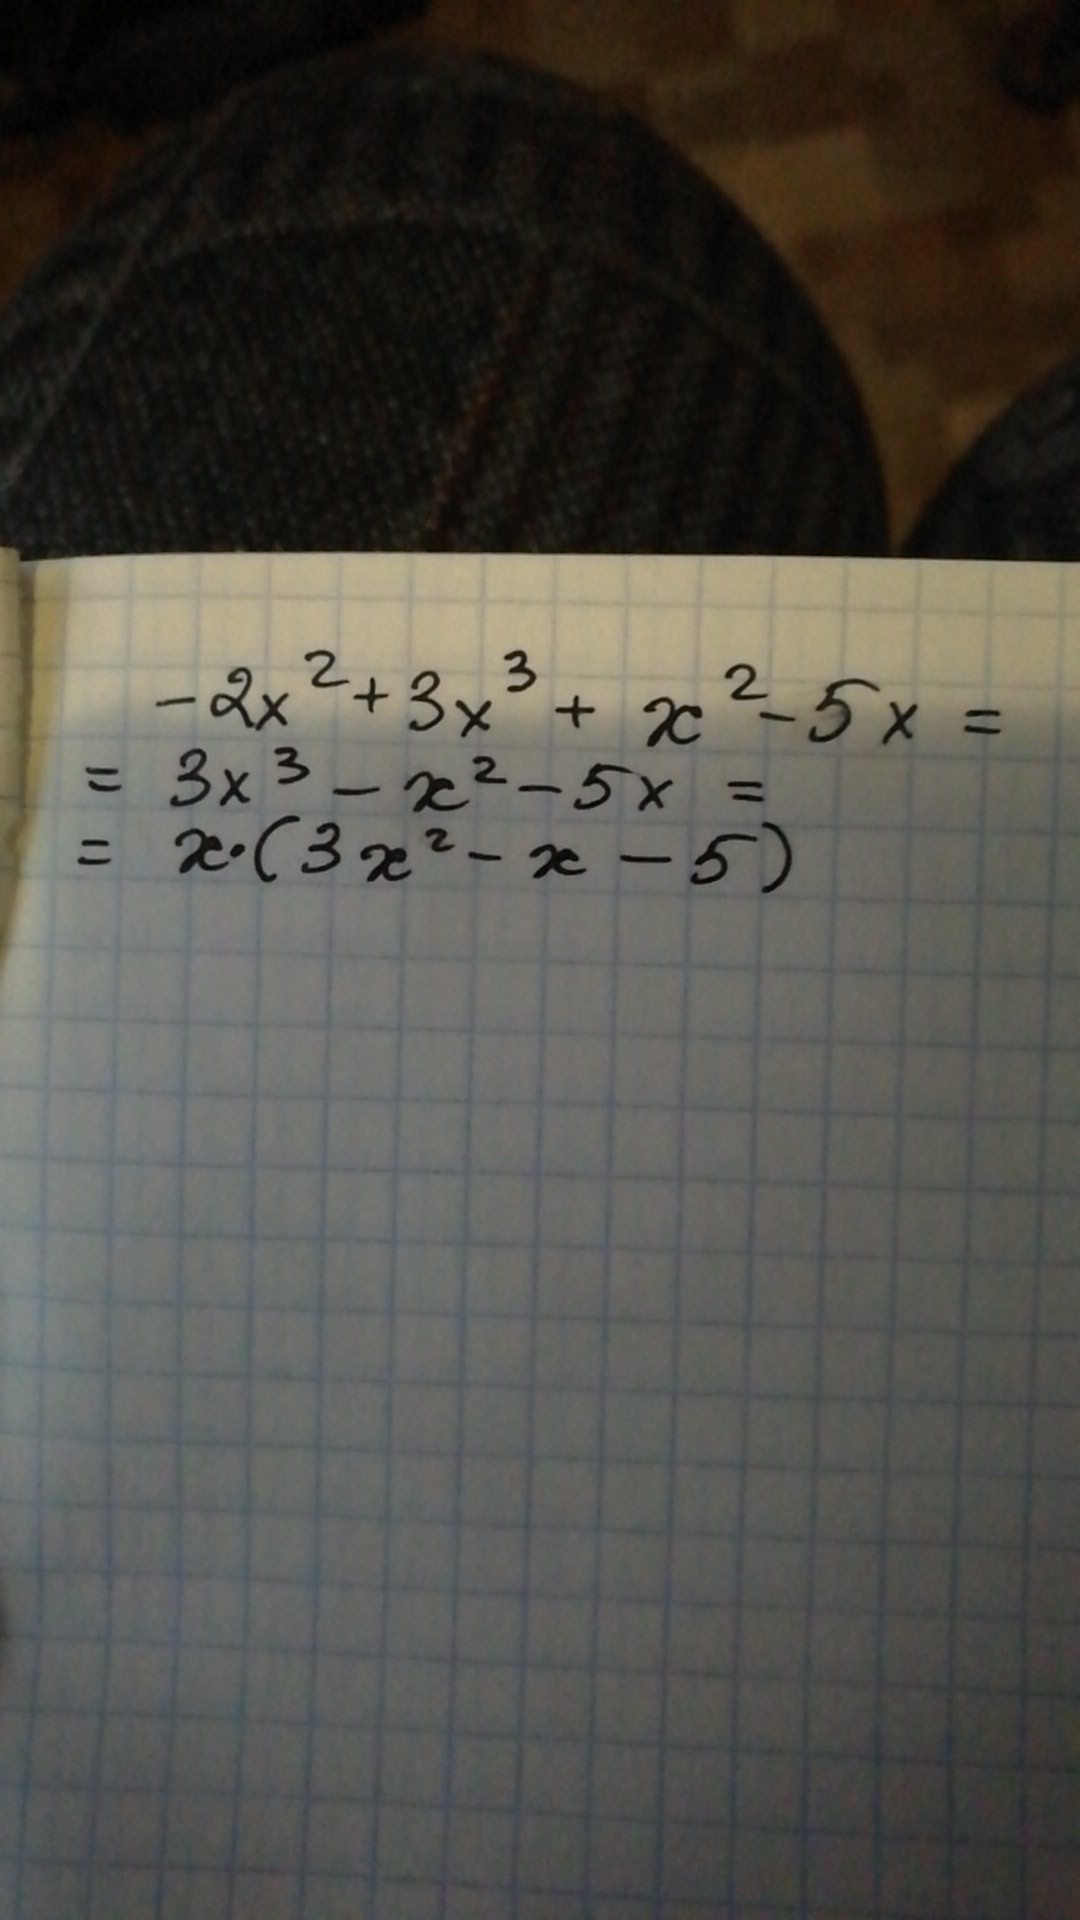 -2x²+3x³ + x²-5x =
= 3x³ - x² - 5x =
= x·(3x² - x - 5)